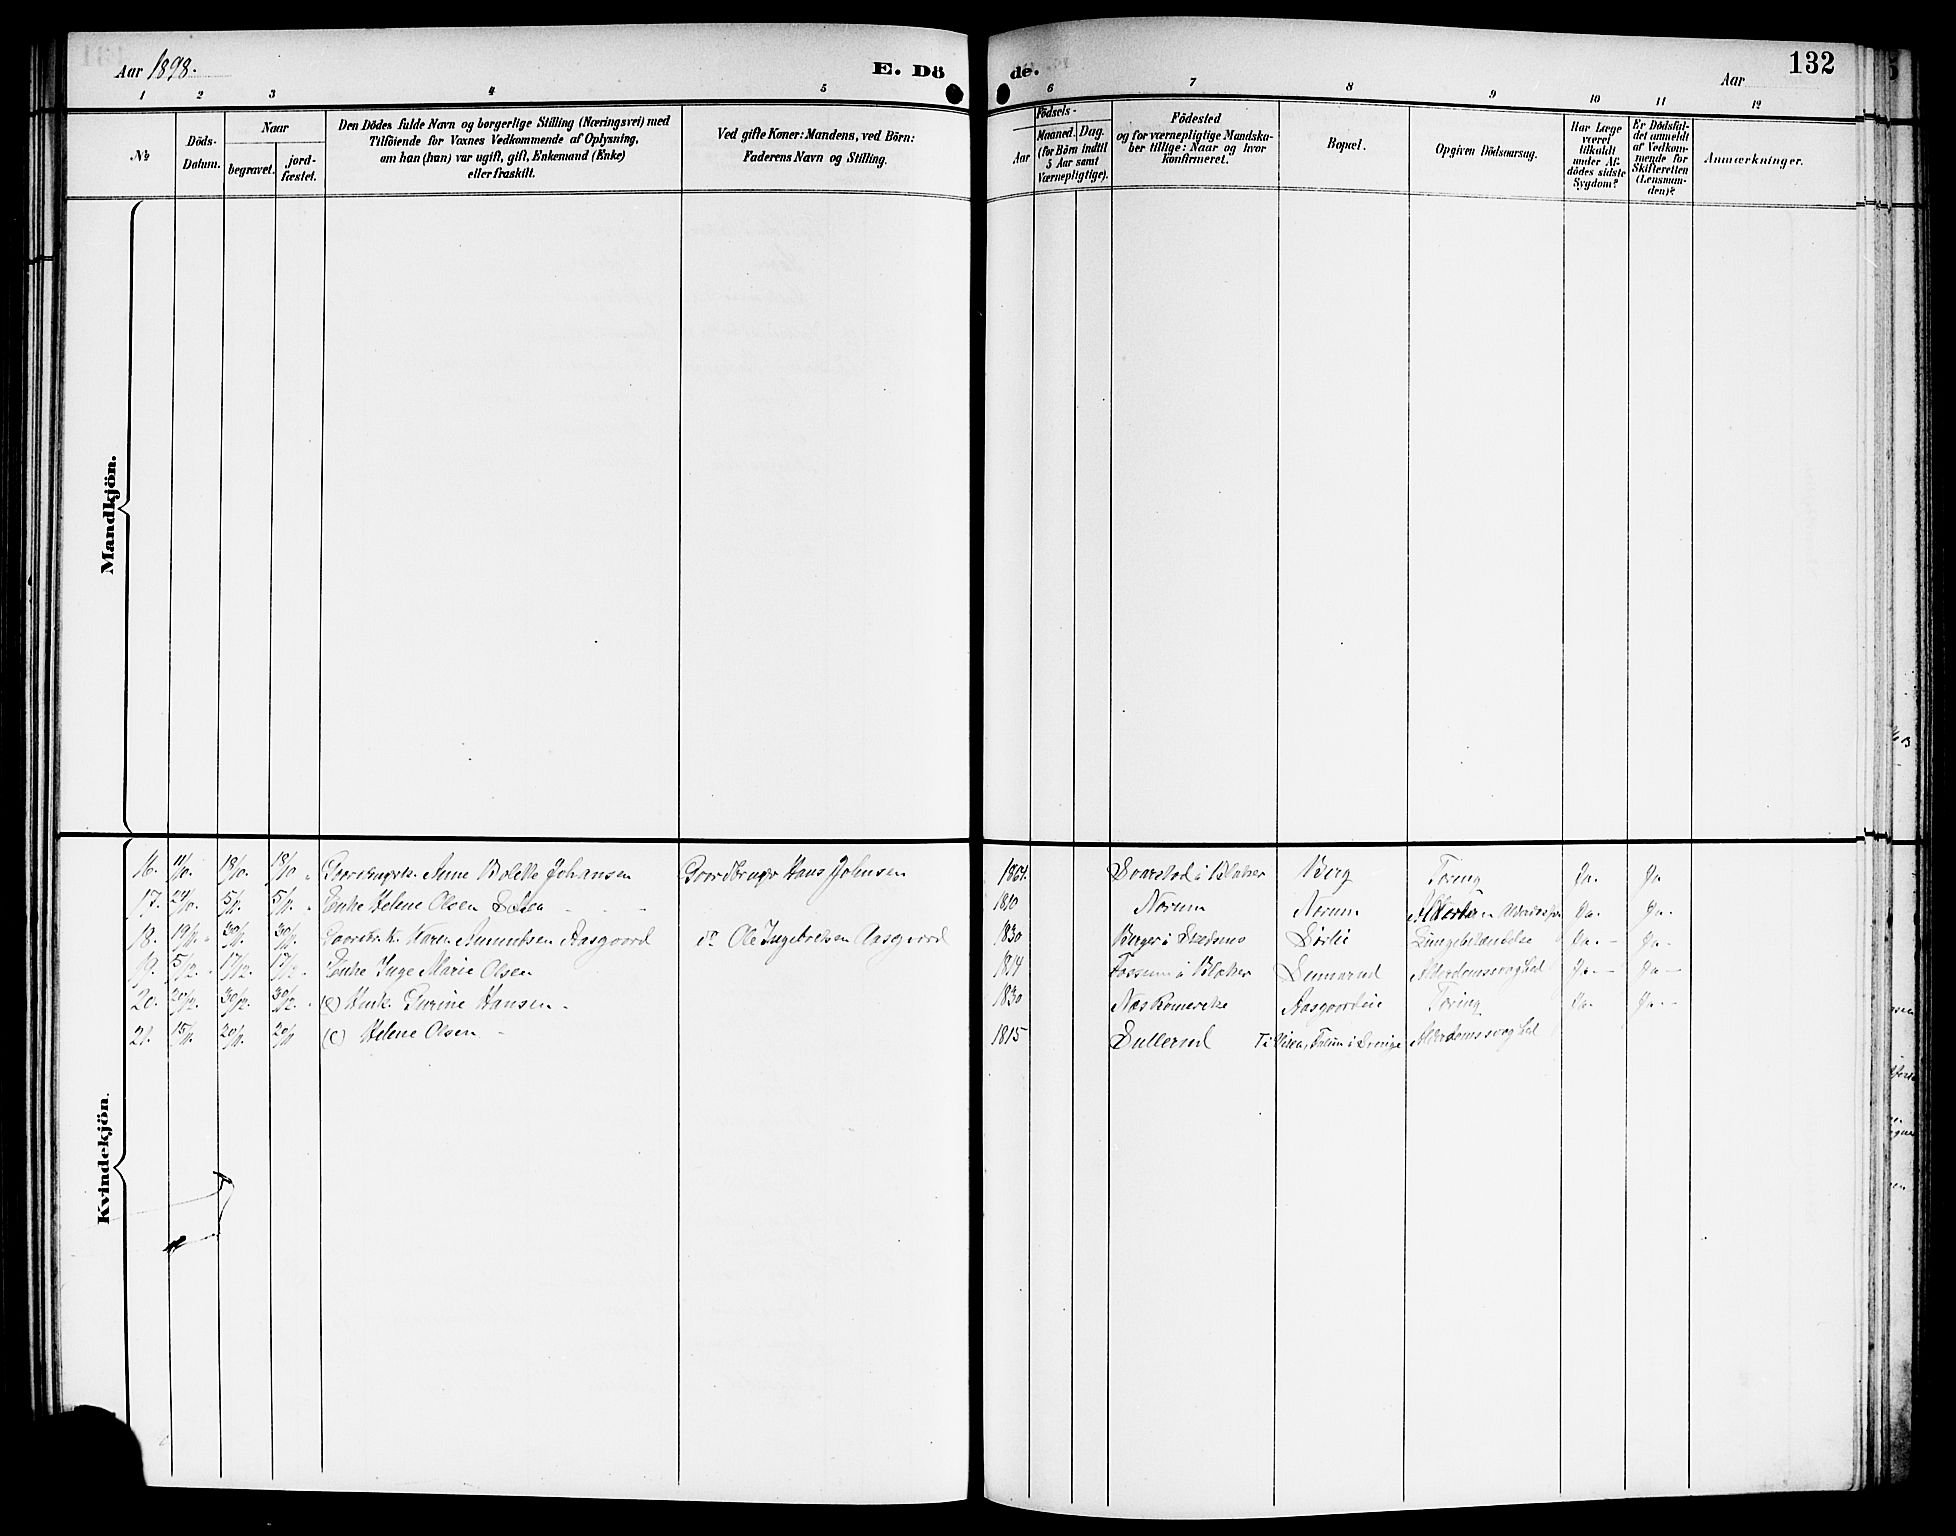 Aar 1898.
E. Dö
de.
132
Aar
1 2 3 4 5 6 7 8 9 10 11 12
№
Döds-
Datum.
Naar
begravet.
jord-
fæstet.
Den Dödes fulde Navn og borgerlige Stilling (Næringsvei) med
Tilföiende for Voxnes Vedkommende af Oplysning,
om han (hun) var ugift, gift, Enkemand (Enke)
eller fraskilt.
Ved gifte Koner: Mandens, ved Börn:
Faderens Navn og Stilling.
Födsels-
Aar
Maaned. Dag.
(for Börn indtil
5 Aar samt
Værnepligtige).
Födested
og for værnepligtige Mandska-
ber tillige: Naar og hvor
Konfirmeret.
Bopæl.
Opgiven Dödsaarsag.
Har Læge
været
tilkaldt
under Af-
dödes sidste
Sygdom?
Er Dödsfal-
det anmeldt
af Vedkom-
mende for
Skifteretten
(Lensman-
den)?
Anmærkninger.
Mandkjön.
Kvindekjön.
16. 11/10. 18/10. 18/10 Anne Bolette Johansen Gaardbruger Hans Johnsen 1864. i Blaker Berg Tæring Ja. Ja
17. 24/10. 5/11. 5/11. Enke Helene Olsen 1810 Norum Norum Ja. Ja.
18. 19/11. 30/11. 30/11. Gaardbr. k. Karen Amundsen Aasgaard do Ole Ingebretsen Aasgaard 1830 Berger i Skedsmo Sørlie Lungebetændelse Ja. - Ja. -
19. 5/12. 17/12. 17/12. Enke Inge Marie Olsen 1814 Fossum i Blaker Alderdomssvaghed Ja. - Ja -
20. 20/12. 30/12. 30/12. (e) Gurine Hansen - 1830 Næs Romerike Tæring Ja. - Ja. -
21. 15/11. 20/11. 20/11 (e) Helene Olsen - 1815 Sullerud Falun i Sverige Alderdomssvaghed